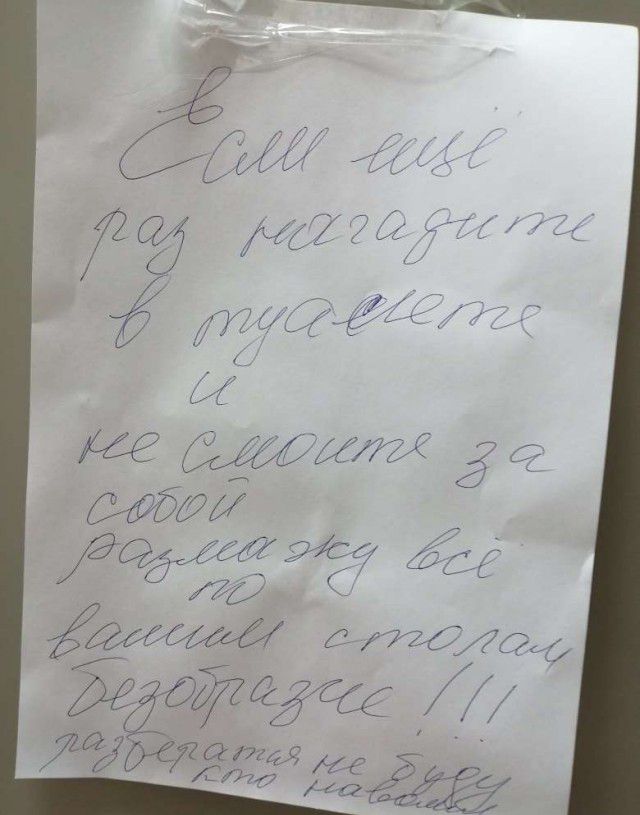 Если ещё
раз нагадите
в туалете
и
не смоите за
собой
размажу всё
по
вашим столам
безобразие!!!
разбератся не буду
кто навалил